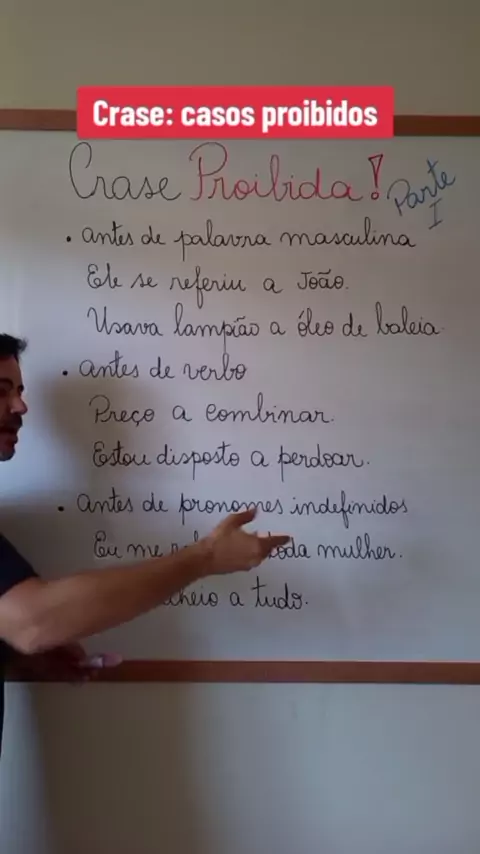 Crase: casos proibidos
Crase Proibida!
Parte I
• antes de palavra masculina
Ele se referiu a João.
Usava lampião a óleo de baleia.
• antes de verbo
Preço a combinar.
Estou disposto a perdoar.
• antes de pronomes indefinidos
Eu me toda mulher.
a tudo.